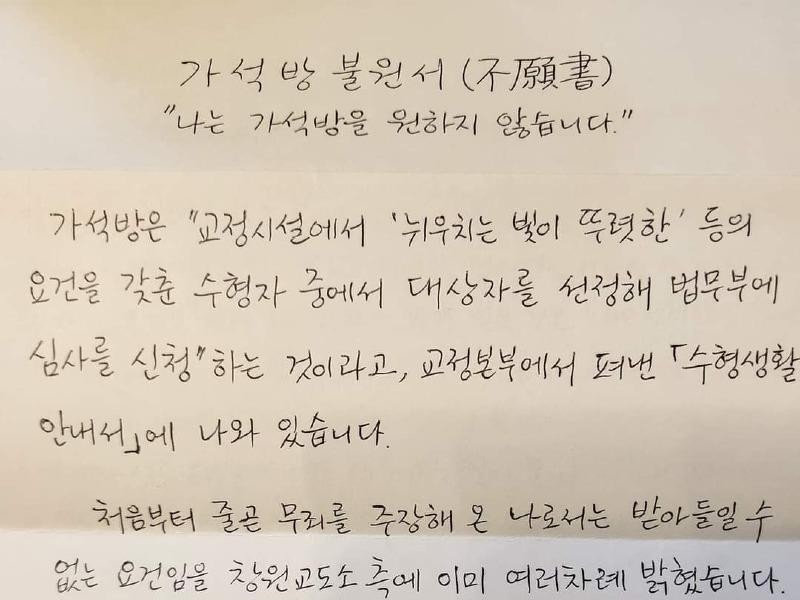 가석방 불원서(不願書)
"나는 가석방을 원하지 않습니다."
가석방은 "교정시설에서 '뉘우치는 빛이 뚜렷한' 등의
요건을 갖춘 수형자 중에서 대상자를 선정해 법무부에
심사를 신청"하는 것이라고, 교정본부에서 펴낸 「수형생활
안내서」에 나와 있습니다.
처음부터 줄곧 무죄를 주장해 온 나로서는 받아들일 수
없는 요건임을 창원교도소 측에 이미 여러차례 밝혔습니다.